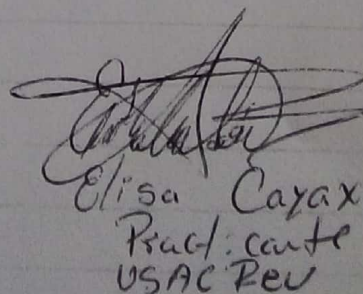 Elisa Cayax
Practicante
USAC Reu